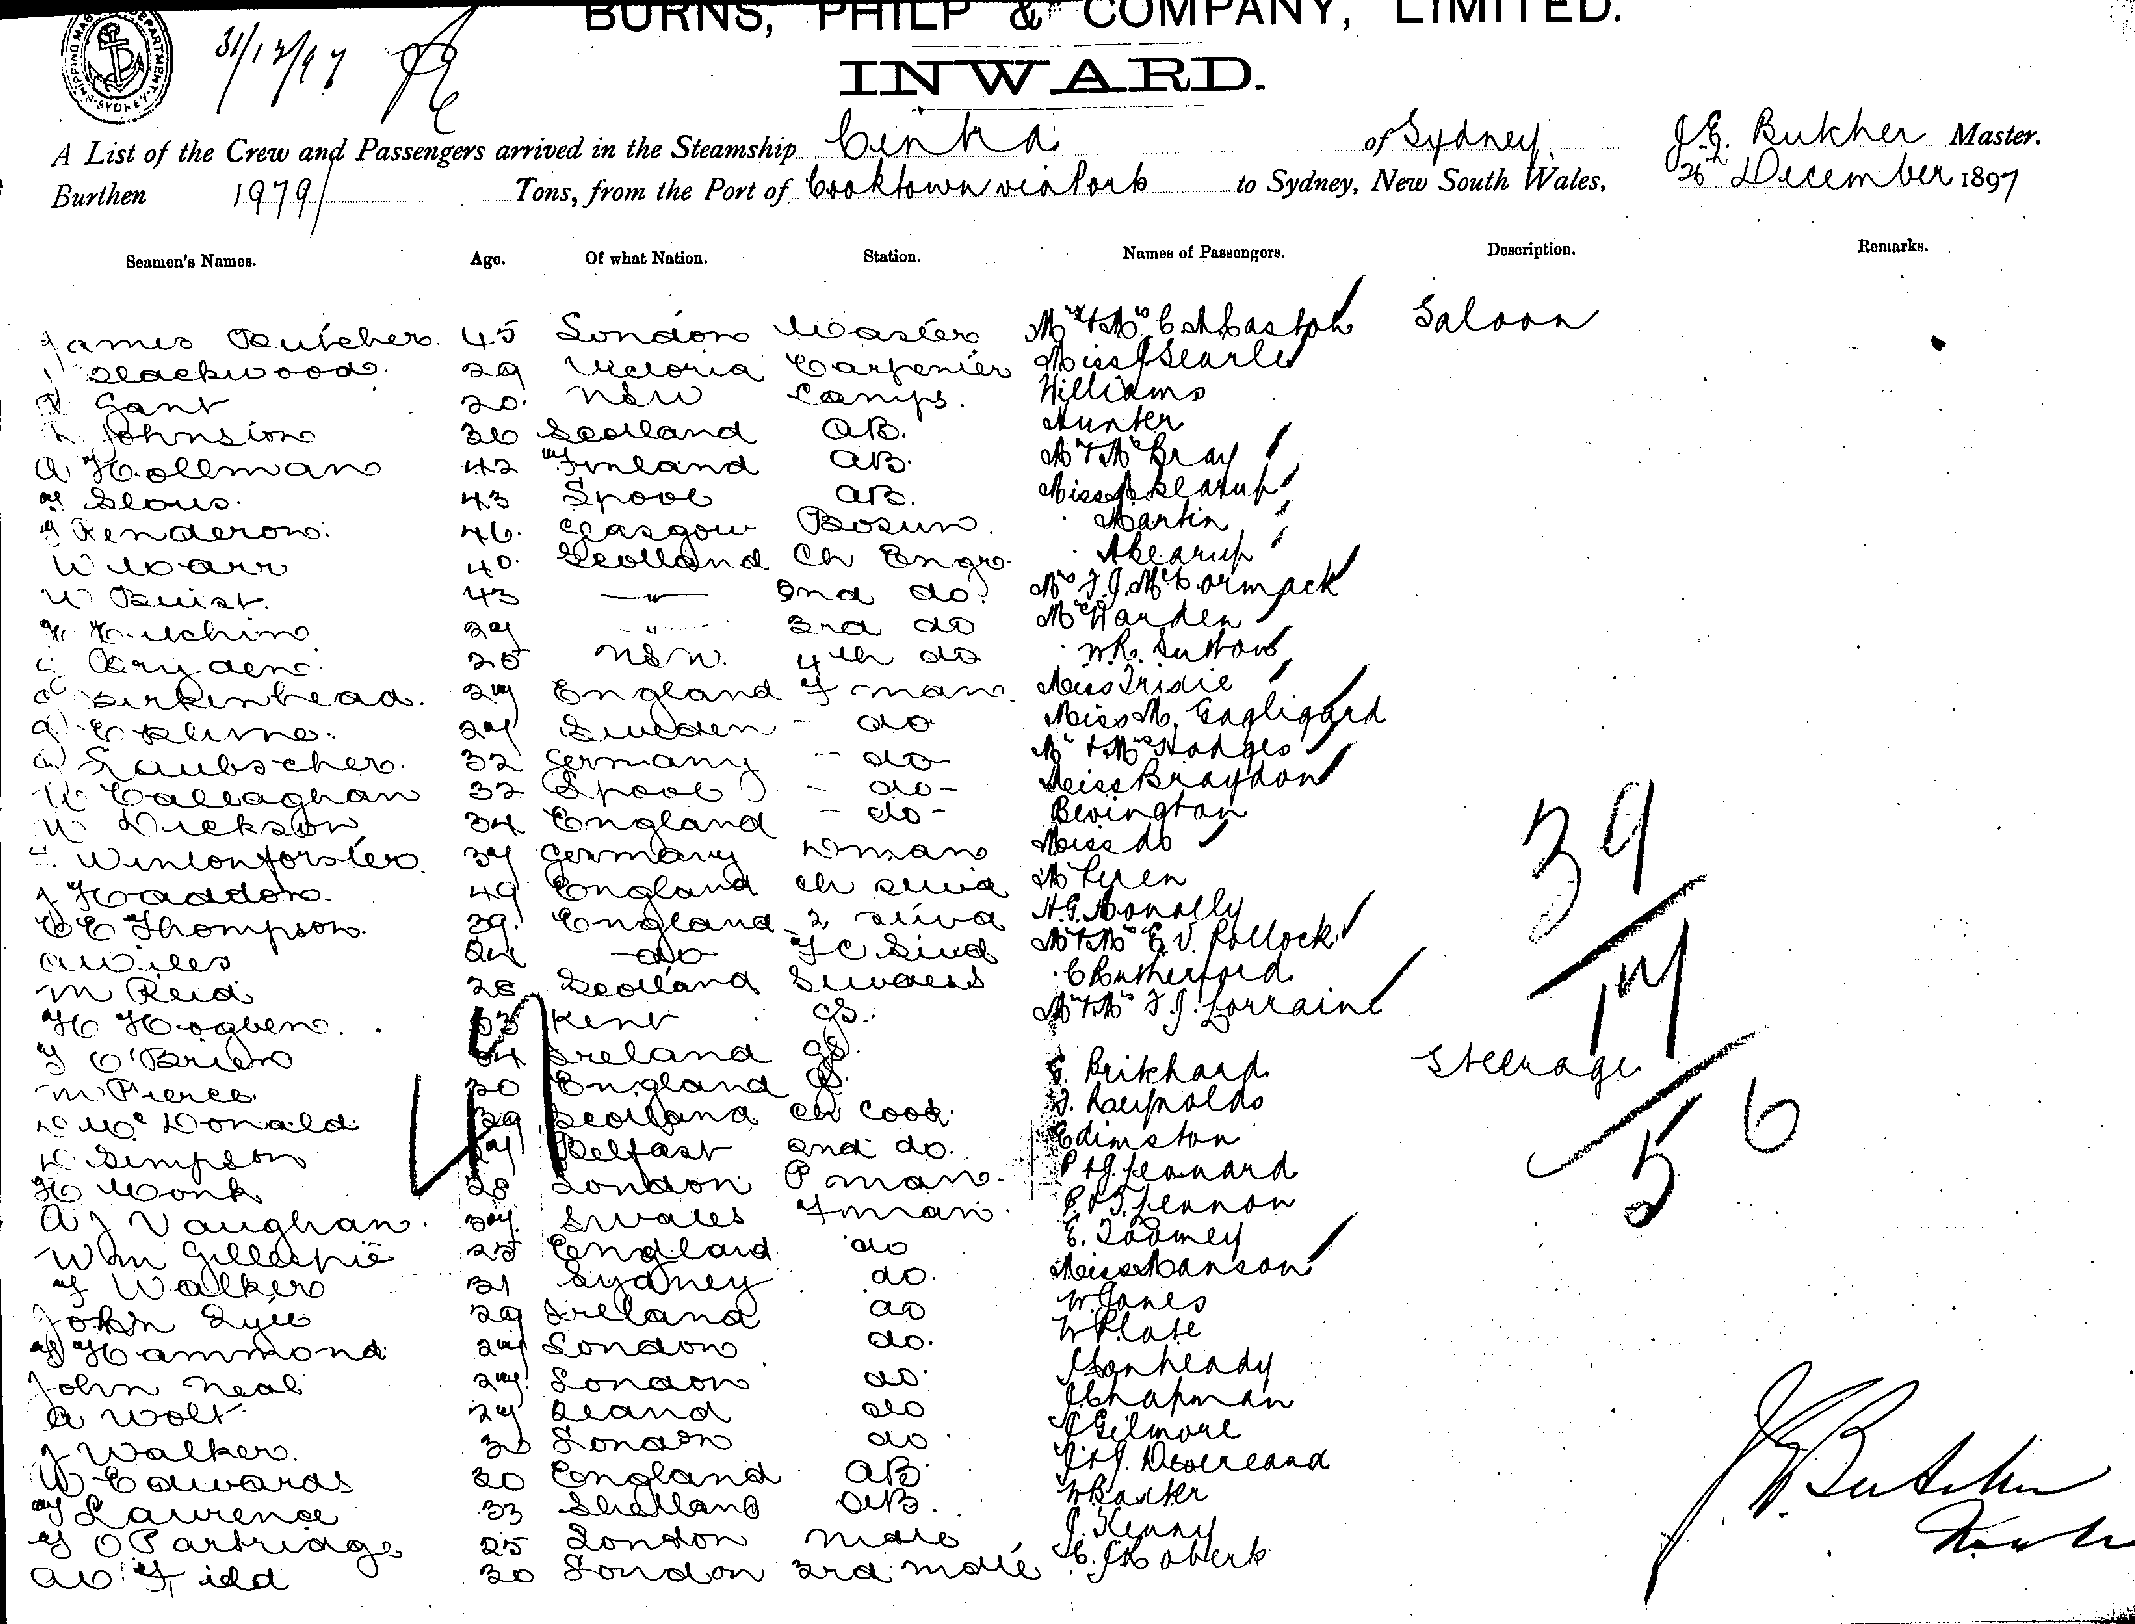 BURNS, PHILP & COMPANY, LIMITED.
31/12/97
INWARD.
A List of the Crew and Passengers arrived in the Steamship Cintra of Sydney, J.G. Butcher Master.
Burthen 1979 Tons, from the Port of Cooktown via Ports to Sydney, New South Wales, 26th December 1897
Seamen's Names. Age. Of what Nation. Station. Names of Passengers. Description. Remarks.
James Butcher 45 London Master Mr & Mrs Saloon
Blackwood 29 Victoria Carpenter Miss Searle
Gant 20 NSW Lamps. Williams
Johnston 36 Scotland AB. Hunter
A Hollman 42 Finland AB. Mr & Mrs Bray
43 Spool AB. Miss Skearup
Henderson 46 Glasgow Bosun Martin
W Warr 40 Scotland Ch Engr. Skearup
W Buist 43 — " — 2nd do. Mrs F.J. McCormack
Hutchins 29 " 3rd do McWarden
Bryden 25 NSW. 4th do W.R. Sutton
Birkinhead 27 England Fman Miss Tridie
27 Sweden - do Miss M.
Laubscher 32 Germany - do - Mr & Mrs Hodges
Callaghan 32 Spool - do - Miss Braydon
W Dickson 34 England - do - Bevington
Wintonforster 37 Germany Miss do
J Haddon 49 England Ch Stwd
C E Thompson 39 England 2 Stwd H.G. Conolly
A Wiles 24 - do - F C Stwd Mr & Mrs E.V. Pollock
M Reid 28 Scotland Stwdess C Rutherford
H Hogben 33 Kent GS. Mr & Mrs F.J. Lorraine
O'Brien 24 Ireland GS.
M Pierce 20 England GS. Pritchard Steerage
McDonald 29 Scotland Ch Cook J. Reynolds
Simpson 27 Belfast 2nd do. Edimston
H Monk 28 London P man P & J. Leonard
A J Vaughan 37 S Wales Fman Lennon
Wm Gillespie 25 England do E. Toomey
Walker 31 Sydney do. Miss Manson
John 29 Ireland do W. Jones
Hammond 27 London do. W Plate
John Neal 27 London do
A Wolt 27 do J Chapman
J Walker London do J Gilmore
W Edwards 20 England AB J & J.
Lawrence 33 Shetland AB. W Baxter
O Partridge 25 London Mate J. Kenny
Field 30 London 3rd Mate
39
17
56
41
J G Butcher
Master